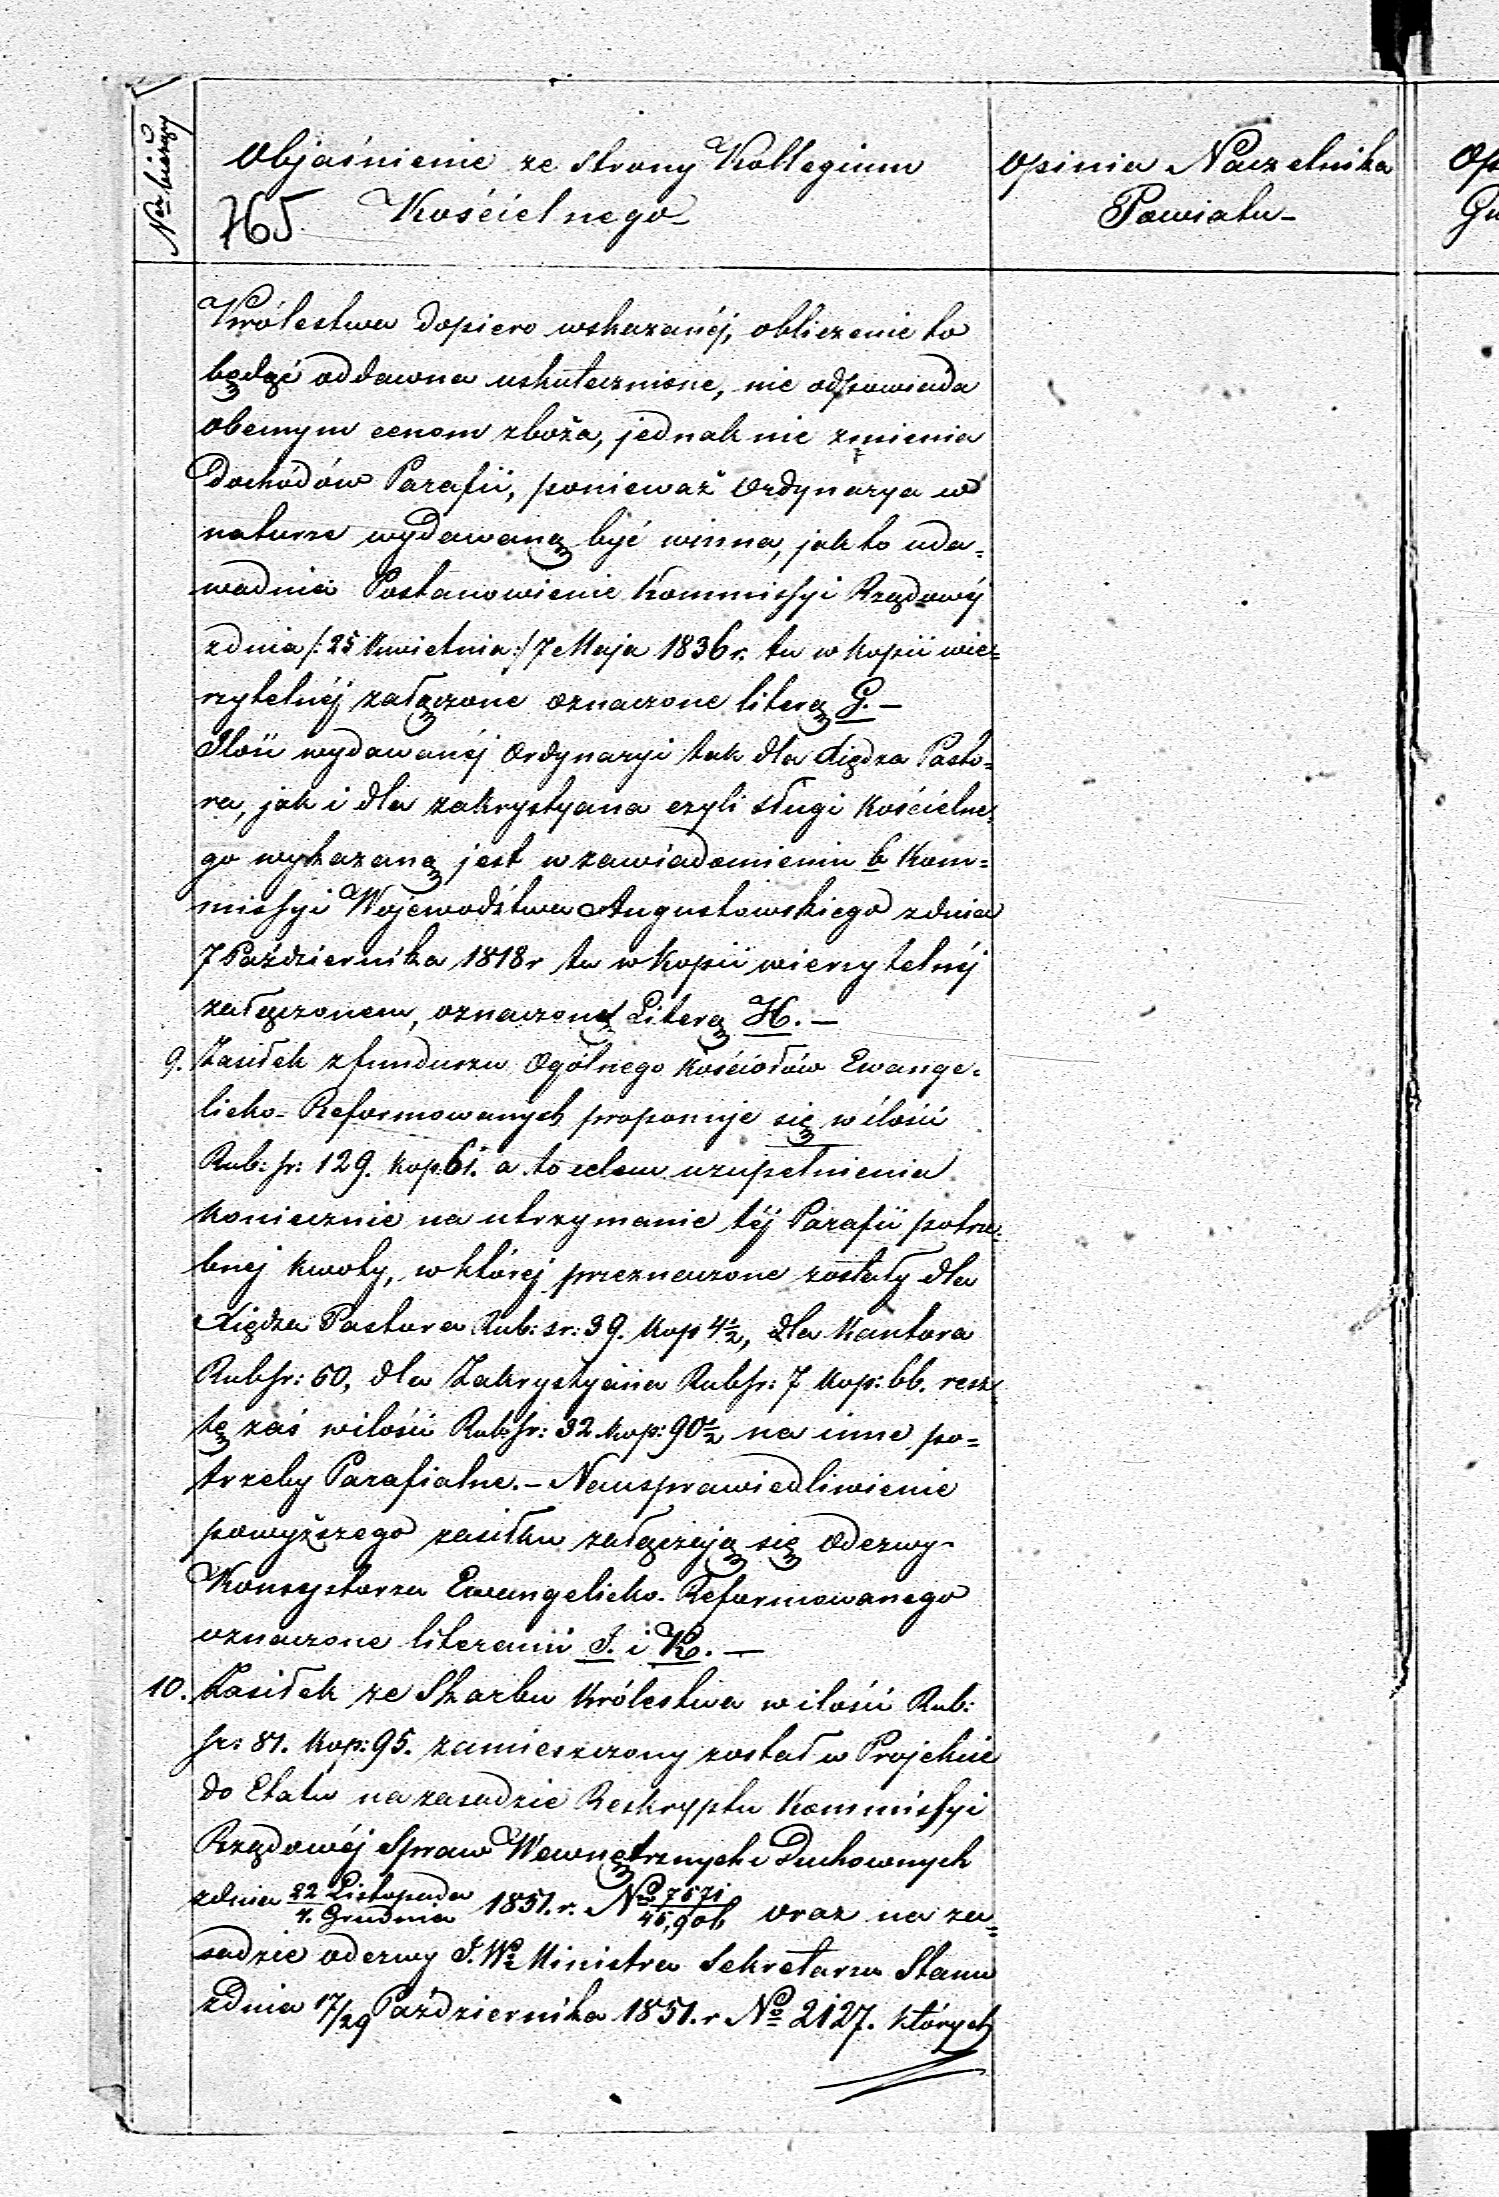 Ner bieżący
Objaśnienie ze strony Kollegium
Kościelnego
765
Opinia Naczelnika
Powiatu
Op
Gu
Królestwa dopiero wskazanéj, obliczenie to
będąc oddawna uskutecznione, nie odpowiada
obecnym cenom zboża, jednak nie zmienia
Dochódów Parafii, ponieważ Ordynarya w
naturze wydawaną być winna, jak to uda=
wadnia Postanowienie Kommissyi Rządowéj
zdnia /:25 Kwietnia:/ 7 Maja 1836 r. tu w kopii wie=
rzytelnéj załączone oznaczone literą G. –
Ilość wydawanéj Ordynaryi tak dla Xiędza Pasto=
ra, jak i dla zakrystyana czyli sługi Kościelne=
go wykazaną jest w zawiadomieniu b Kom=
missyi Wojewodztwa Augustowskiego zdnia
7 Października 1818 r tu w kopii wierzytelnéj
załączonem, oznaczoną Literą H. –
9. Zasiłek z funduszu Ogólnego Kościołów Ewange=
licko-Reformowanych proponuje się w ilości
Rub: sr: 129. kop. 61. a to celem uzupełnienia
koniecznie na utrzymanie téj Parafii potrze=
bnej kwoty, w której przeznaczone zostały dla
Xiędza Pastora Rub: sr: 39. kop 4½, dla Kantora
Rub sr: 50, dla Zakrystyana Rub sr: 7 kop: 66. resz=
tę zaś wilości Rub sr: 32 kop: 90½ na inne po=
trzeby Parafialne. – Na usprawiedliwienie
powyższego zasiłku załączają się Odezwy
Konsystorza Ewangelicko-Reformowanego
oznaczone literami J. i K. –
10. Zasiłek ze Skarbu Królestwa w ilości Rub:
sr: 81. kop: 95. zamieszczony został w Projekcie
do Etatu na zasadzie Reskryptu Kommissyi
Rządowéj Spraw Wewnętrznych i Duchownych
zdnia 22 Listopada / 4. Grudnia 1851. r. No 7571/45,906 oraz na za=
sadzie odezwy J. W. Ministra Sekretarza Stanu
zdnia 17/29 Października 1851. r No 2127. których